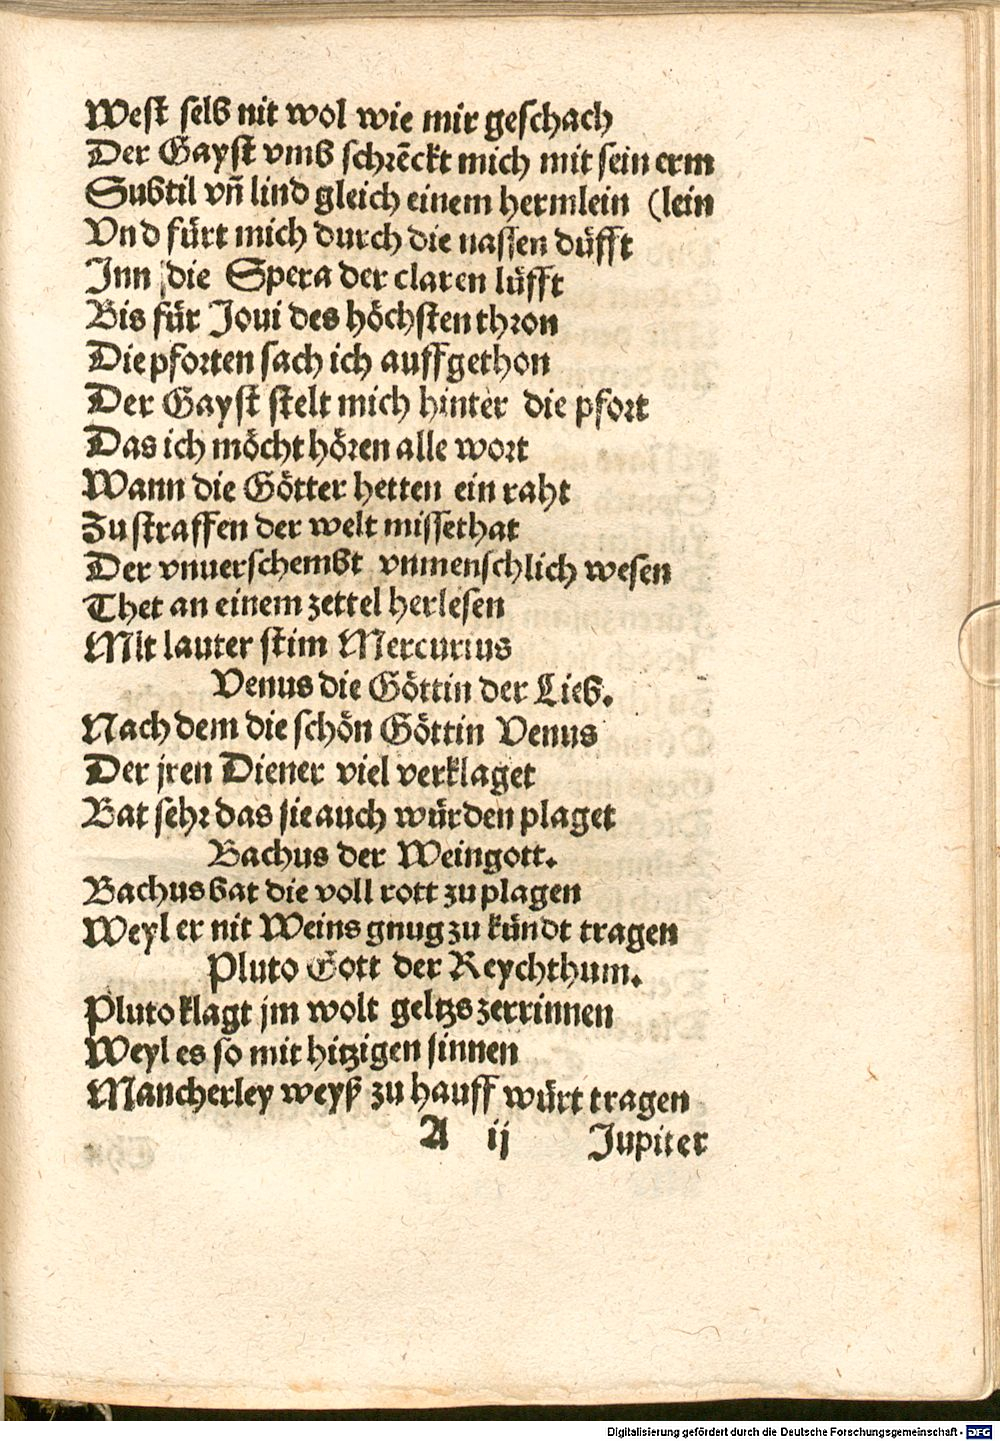 West selb nit wol wie mir geschach
Der Gayst vmb schrēckt mich mit sein erm
Subtil vñ lind gleich einem hermlein (lein
Vnd fürt mich durch die nassen düfft
Inn die Spera der claren lüfft
Bis für Joui des höchsten thron
Die pforten sach ich auffgethon
Der Gayst stelt mich hinter die pfort
Das ich möcht hören alle wort
Wann die Götter hetten ein raht
Zu straffen der welt missethat
Der vnuerschembt vnmenschlich wesen
Thet an einem zettel herlesen
Mit lauter stim Mercurius
Venus die Göttin der Lieb.
Nach dem die schön Göttin Venus
Der jren Diener viel verklaget
Bat sehr das sie auch würden plaget
Bachus der Weingott.
Bachus bat die voll rott zu plagen
Weyl er nit Weins gnug zu kündt tragen
Pluto Gott der Reychthum.
Pluto klagt jm wolt geltzs zerrinnen
Weyl es so mit hitzigen sinnen
Mancherley weyß zu hauff würt tragen
A ij Jupiter
Digitalisierung gefördert durch die Deutsche Forschungsgemeinschaft - DFG